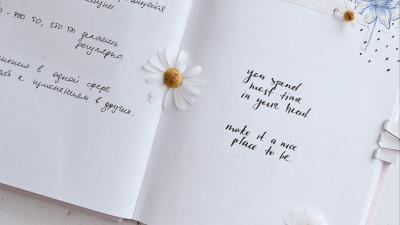 - это то, что ты
делаешь
регулярно.
в одной сфере
к изменениям в других.
you spend
most time
in your head
make it a nice
place to be.